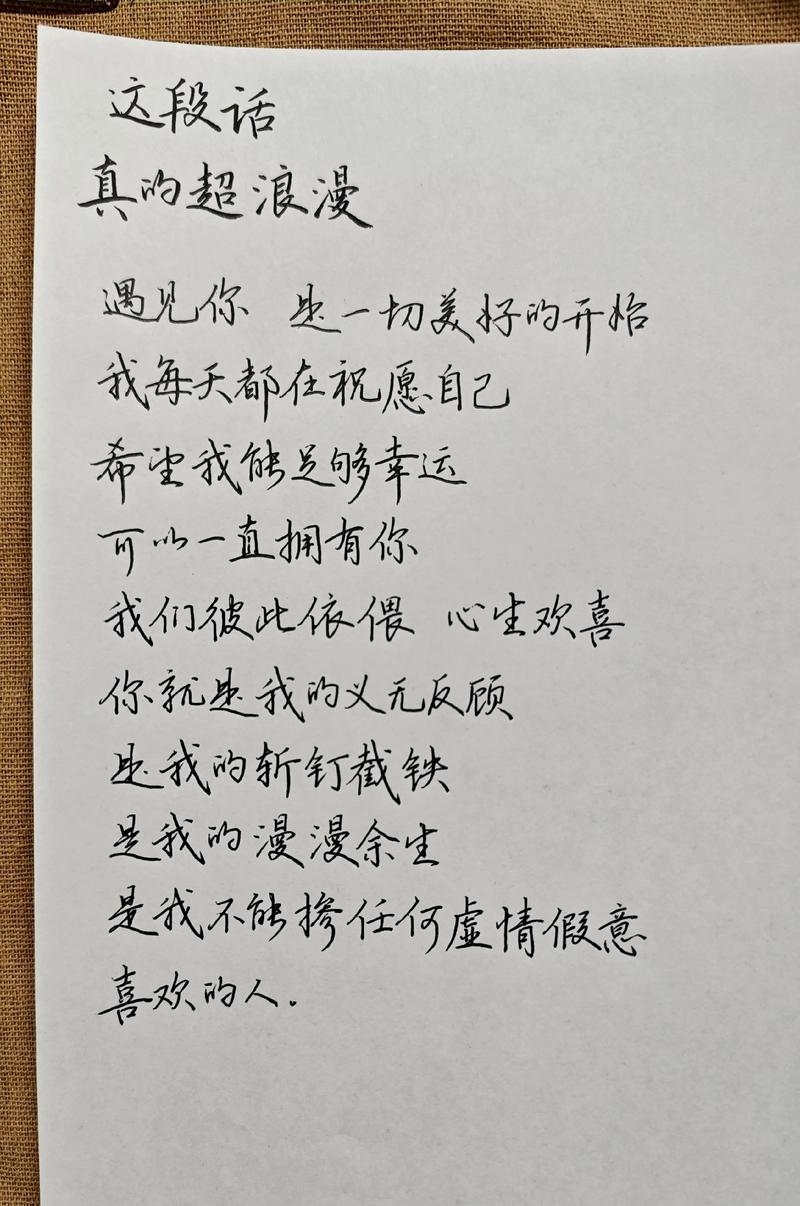 这段话
真的超浪漫
遇见你 是一切美好的开始
我每天都在祝愿自己
希望我能足够幸运
可以一直拥有你
我们彼此依偎 心生欢喜
你就是我的义无反顾
是我的斩钉截铁
是我的漫漫余生
是我不能掺任何虚情假意
喜欢的人.